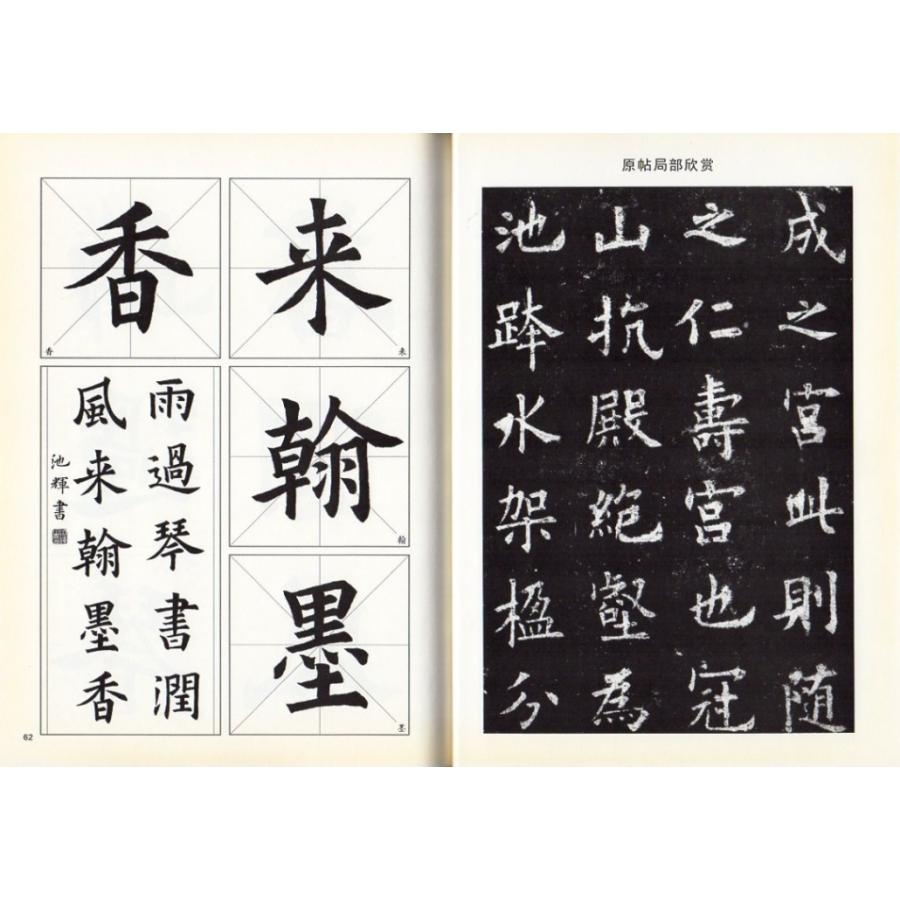 来
来
翰
翰
墨
墨
香
香
雨過琴書潤
風来翰墨香
池輝書
62
原帖局部欣赏
成之宮此則随
之仁壽宮也冠
山抗殿絶壑為
池跨水架楹分